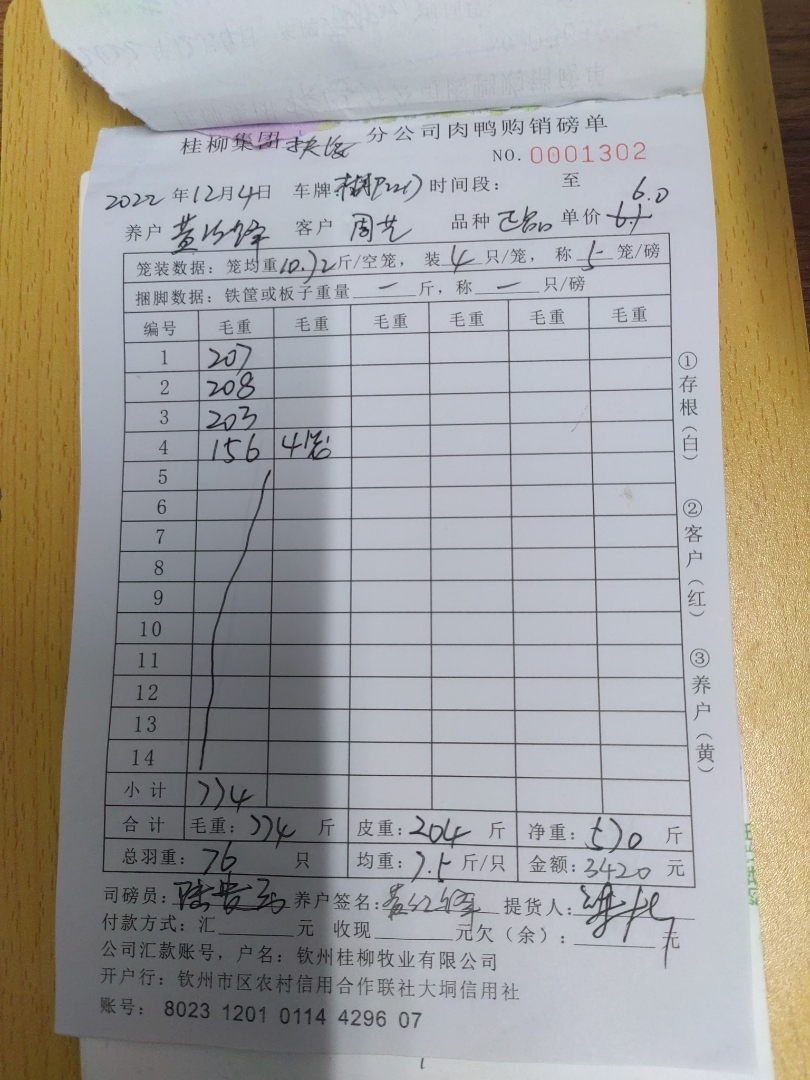 桂柳集团 分公司肉鸭购销磅单
NO. 0001302
2022年12月4日 车牌 时间段: 至
6.0
养户 黄 锋 客户 周艺 品种 正品 单价
笼装数据:笼均重10.72斤/空笼,装4只/笼,称5笼/磅
捆脚数据:铁筐或板子重量 — 斤,称 — 只/磅
编号 毛重 毛重 毛重 毛重 毛重 毛重
1 207
2 208
3 203
4 156 4笼
5
6
7
8
9
10
11
12
13
14
小计 774
合计 毛重:774斤 皮重:204斤 净重:570斤
总羽重:76只 均重:7.5斤/只 金额:3420元
司磅员: 养户签名:黄 锋 提货人:
付款方式:汇 元 收现 元欠(余): 元
公司汇款账号,户名:钦州桂柳牧业有限公司
开户行:钦州市区农村信用合作联社大垌信用社
账号: 8023 1201 0114 4296 07
①存根(白)
②客户(红)
③养户(黄)